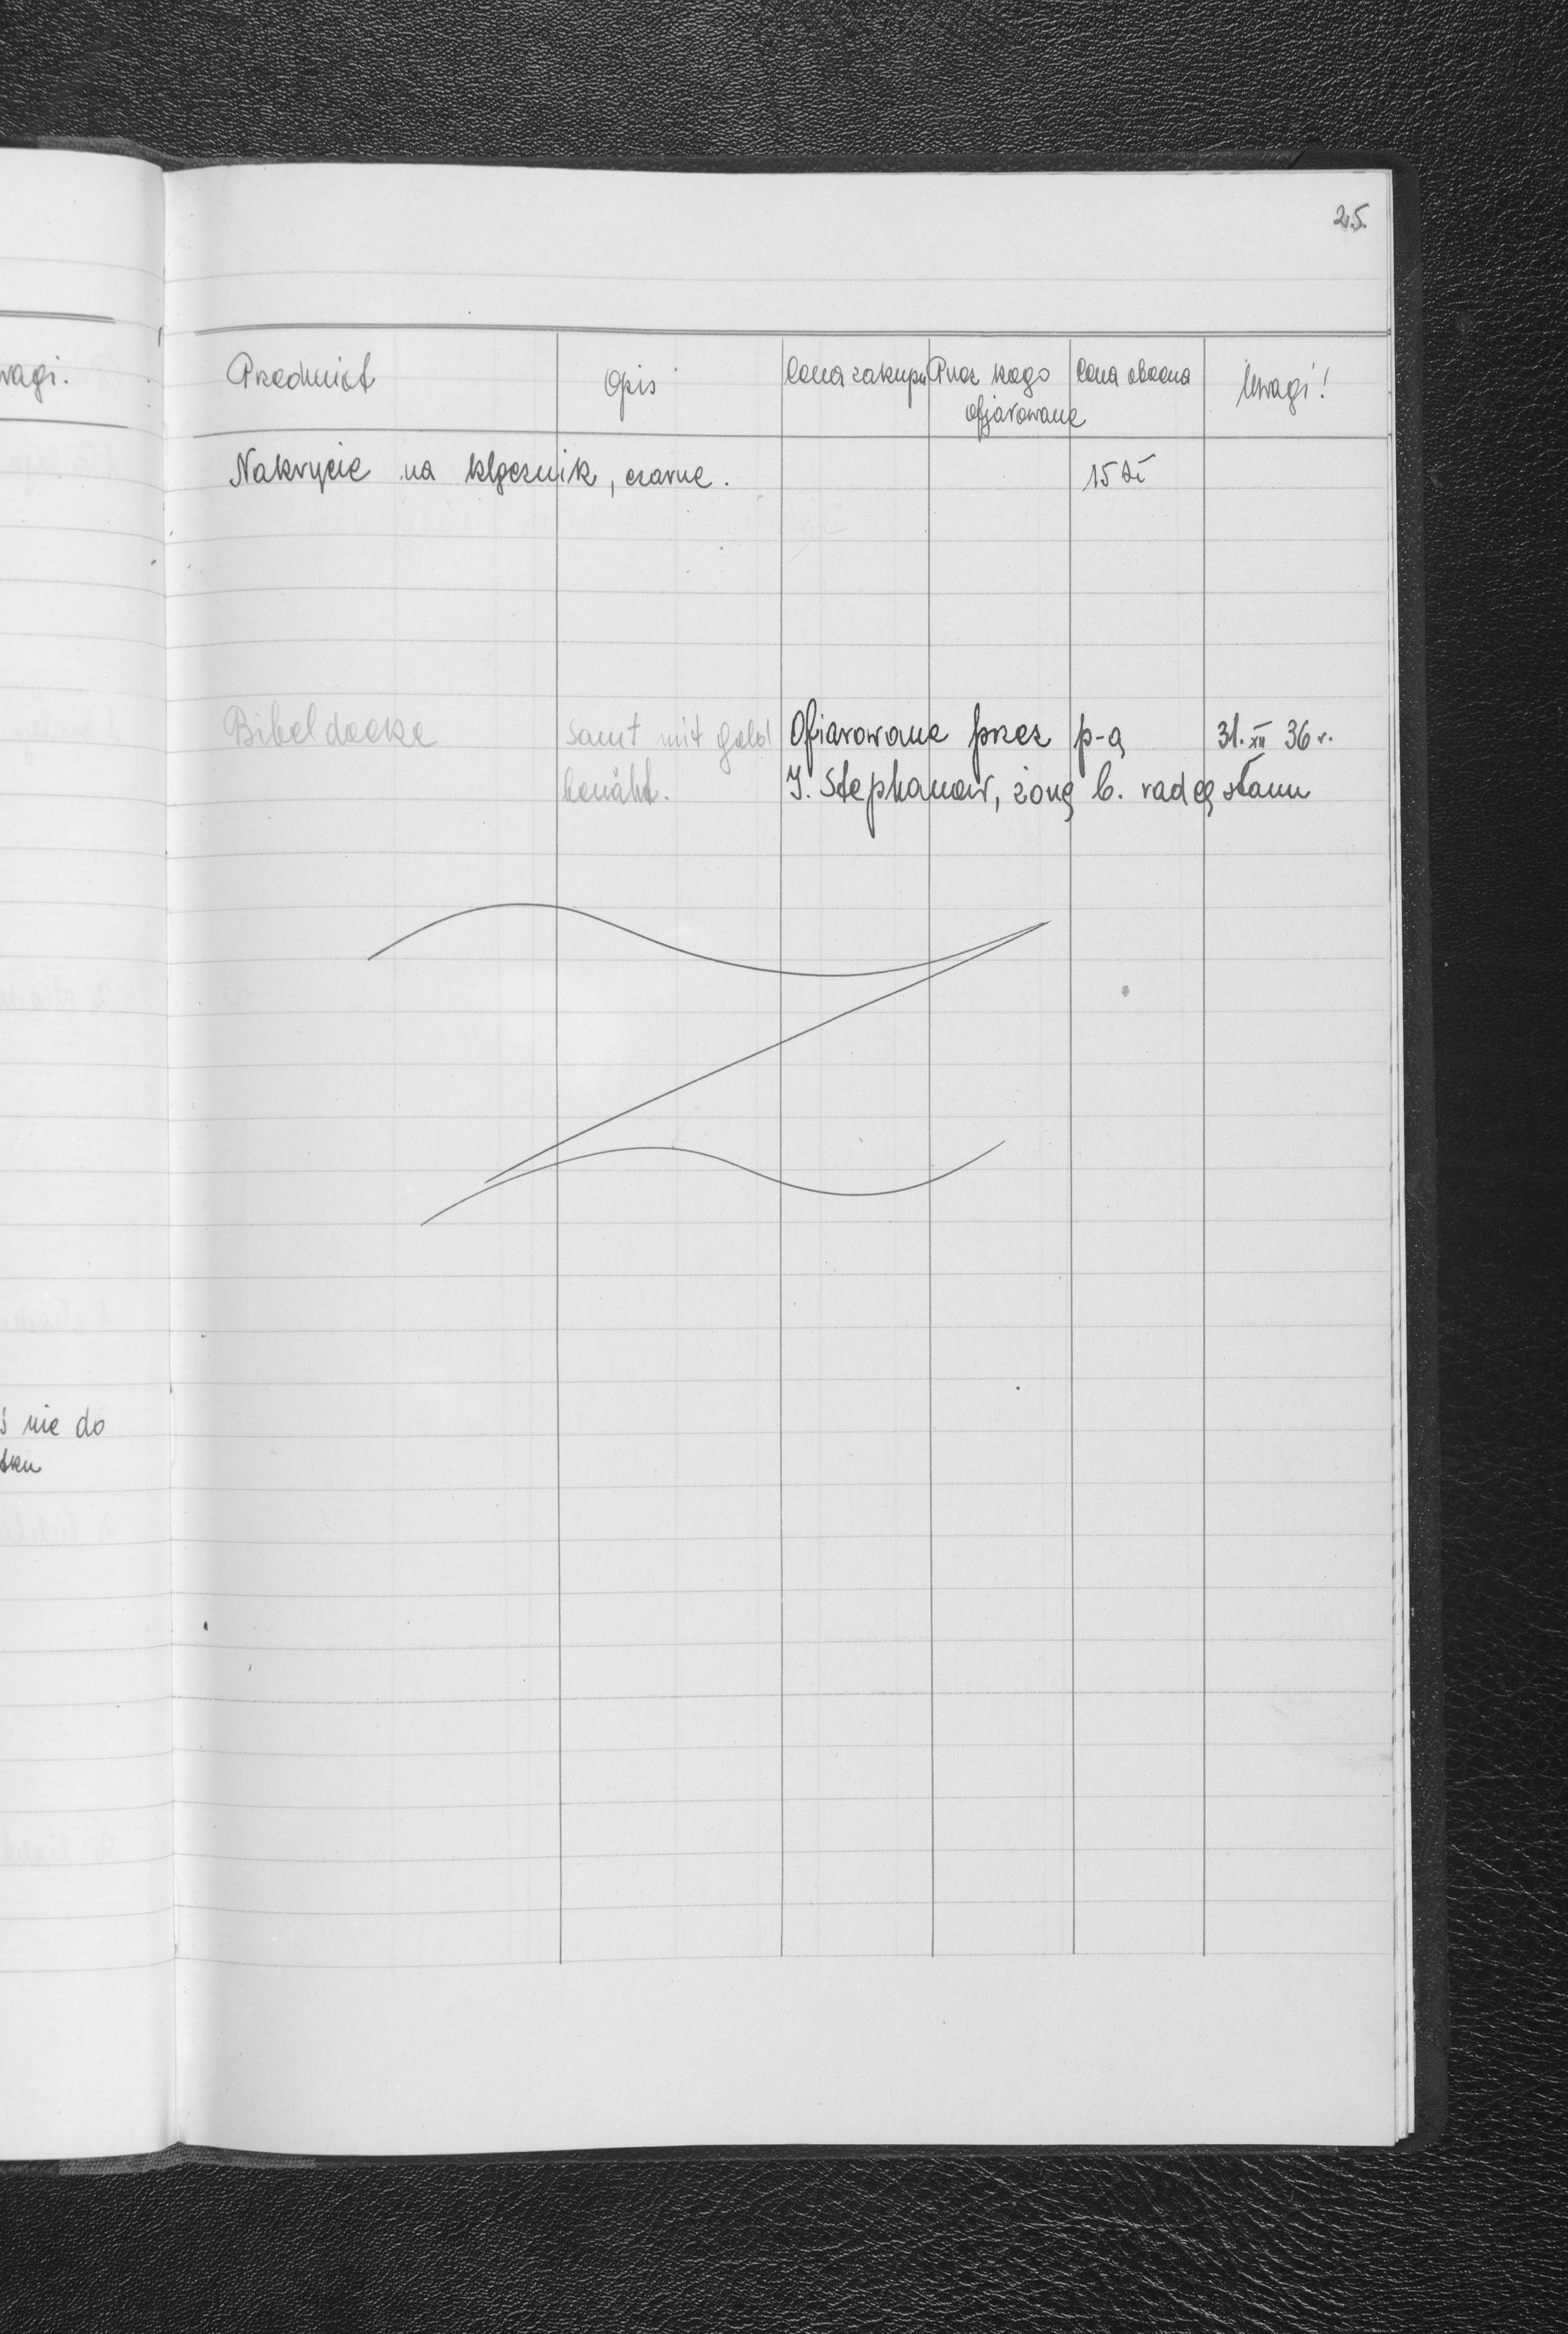 25.
wagi.
Przedmiot Opis Cena zakupu Przez kogo ofjarowane Cena obecna Uwagi!
Nakrycie na klęcznik, czarne. 15 zł
Bibeldecke Samt mit Gold Ofiarowane przez p-ą 31. XII 36 r.
benäht. J. Stephanow, żonę b. radcę stanu
ś nie do
tku